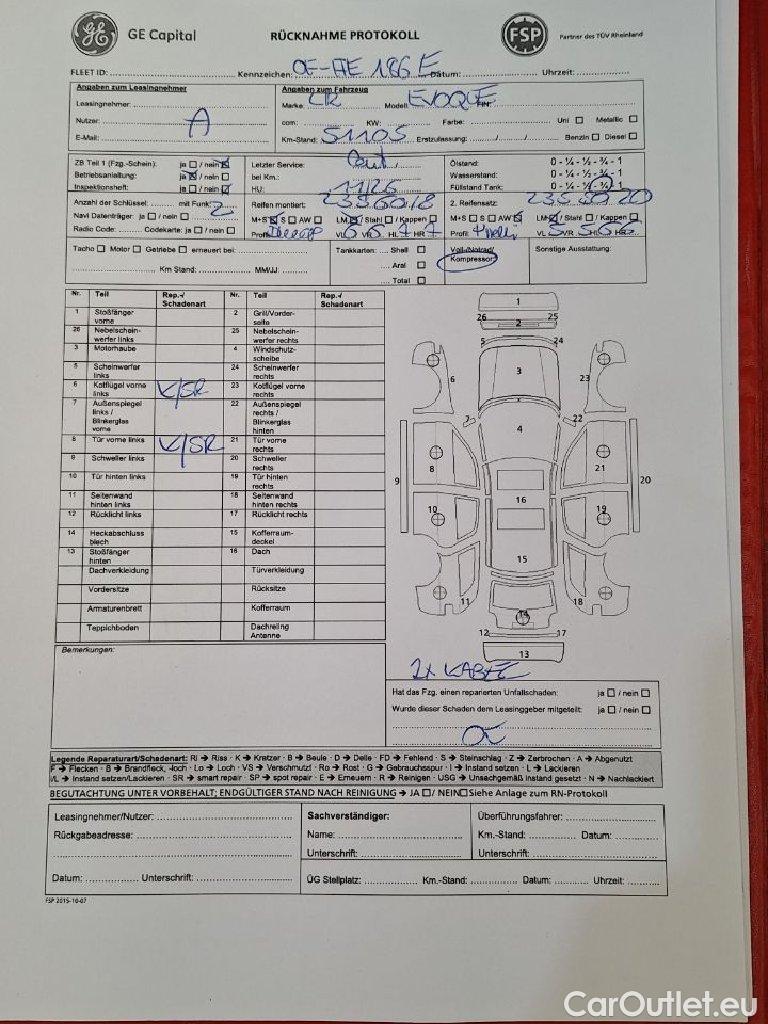 GE Capital RÜCKNAHME PROTOKOLL FSP Partner des TÜV Rheinland
FLEET ID: Kennzeichen: Datum: Uhrzeit:
Angaben zum Leasingnehmer
Leasingnehmer:
Nutzer: A
E-Mail:
Angaben zum Fahrzeug
Marke: LR Modell: EVOQUE FIN:
ccm: KW: Farbe: Uni Metallic
Km-Stand: 51105 Erstzulassung: Benzin Diesel
ZB Teil 1 (Fzg.-Schein): ja / nein
Betriebsanleitung: ja / nein
Inspektionsheft: ja / nein
Letzter Service:
bei Km.:
HU: 11/26
Ölstand: 0 - ¼ - ½ - ¾ - 1
Wasserstand: 0 - ¼ - ½ - ¾ - 1
Füllstand Tank: 0 - ¼ - ½ - ¾ - 1
Anzahl der Schlüssel: mit Funk: 2
Navi Datenträger: ja / nein
Radio Code: Codekarte: ja / nein
Reifen montiert: 235 60 18
M+S S AW LM / Stahl / Kappen
Profil: VL VR HL 7 HR 7
2. Reifensatz: 235 50 20
M+S S AW LM / Stahl / Kappen
Profil: Pirelli VL 5 VR 5 HL 5 HR
Tacho Motor Getriebe erneuert bei:
Km Stand: MM/JJ:
Tankkarten: Shell
Aral
Total
Voll-/Notrad/
Kompressor
Sonstige Ausstattung:
Nr. Teil Rep.-/ Schadenart Nr. Teil Rep.-/ Schadenart
1 Stoßfänger vorne 2 Grill/Vorder-seite
26 Nebelschein-werfer links 25 Nebelschein-werfer rechts
3 Motorhaube 4 Windschutz-scheibe
5 Scheinwerfer links 24 Scheinwerfer rechts
6 Kotflügel vorne links K/SR 23 Kotflügel vorne rechts
7 Außenspiegel links / Blinkerglas vorne 22 Außenspiegel rechts / Blinkerglas hinten
8 Tür vorne links K/SR 21 Tür vorne rechts
9 Schweller links 20 Schweller rechts
10 Tür hinten links 19 Tür hinten rechts
11 Seitenwand hinten links 18 Seitenwand hinten rechts
12 Rücklicht links 17 Rücklicht rechts
14 Heckabschluss blech 15 Kofferraum-deckel
13 Stoßfänger hinten 16 Dach
Dachverkleidung Türverkleidung
Vordersitze Rücksitze
Armaturenbrett Kofferraum
Teppichboden Dachreling Antenne
1
26 25
2
5 24
3
6 23
7 22
4
8 21
9 20
10 16 19
15
11 14 18
12 17
13
Bemerkungen:
2x KABEL
Hat das Fzg. einen reparierten Unfallschaden: ja / nein
Wurde dieser Schaden dem Leasinggeber mitgeteilt: ja / nein
Legende Reparaturart/Schadenart: RI → Riss - K → Kratzer - B → Beule - D → Delle - FD → Fehlend - S → Steinschlag - Z → Zerbrochen - A → Abgenutzt
F → Flecken - B → Brandfleck, -loch - Lo → Loch - VS → Verschmutzt - Ro → Rost - G → Gebrauchsspur - I → Instand setzen - L → Lackieren
I/L → Instand setzen/Lackieren - SR → smart repair - SP → spot repair - E → Erneuern - R → Reinigen - USG → Unsachgemäß instand gesetzt - N → Nachlackiert
BEGUTACHTUNG UNTER VORBEHALT; ENDGÜLTIGER STAND NACH REINIGUNG → JA / NEIN Siehe Anlage zum RN-Protokoll
Leasingnehmer/Nutzer:
Rückgabeadresse:
Datum: Unterschrift:
Sachverständiger:
Name:
Unterschrift:
Überführungsfahrer:
Km.-Stand: Datum:
Unterschrift:
ÜG Stellplatz: Km.-Stand: Datum: Uhrzeit:
FSP 2015-10-07
CarOutlet.eu